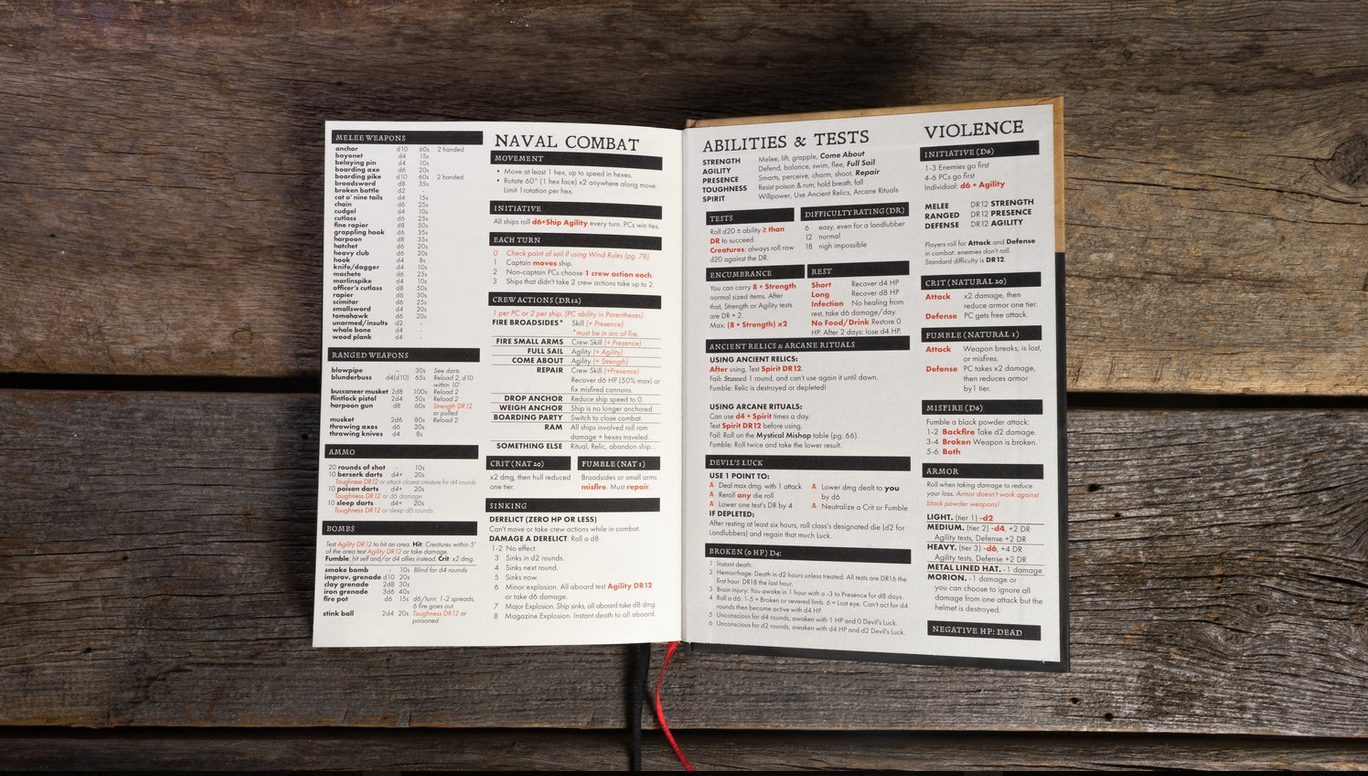 MELEE WEAPONS
anchor d10 60s 2 handed
bayonet d4 15s
belaying pin d4 10s
boarding axe d6 20s
boarding pike d10 60s 2 handed
broadsword d8 35s
broken bottle d2 -
cat o' nine tails d4 15s
chain d6 25s
cudgel d4 10s
cutlass d6 25s
fine rapier d8 50s
grappling hook d6 35s
harpoon d8 35s
hatchet d6 20s
heavy club d6 25s
hook d4 8s
knife/dagger d4 10s
machete d6 25s
marlinspike d4 10s
officer's cutlass d8 50s
rapier d6 30s
scimitar d6 25s
smallsword d4 20s
tomahawk d6 20s
unarmed/insults d2 -
whale bone d4 -
wood plank d4 -
RANGED WEAPONS
blowpipe - 30s See darts
blunderbuss d4(d10) 65s Reload 2, d10
within 10'
buccaneer musket 2d8 100s Reload 2
flintlock pistol 2d4 50s Reload 2
harpoon gun d8 60s Strength DR12
or pulled
musket 2d6 80s Reload 2
throwing axes d6 20s
throwing knives d4 8s
AMMO
20 rounds of shot - 10s
10 berserk darts d4+ 20s
Toughness DR12 or attack closest creature for d4 rounds
10 poison darts d4+ 20s
Toughness DR12 or d6 damage
10 sleep darts d4+ 20s
Toughness DR12 or sleep d6 rounds
BOMBS
Test Agility DR12 to hit an area. Hit: Creatures within 5'
of the area test Agility DR12 or take damage.
Fumble: hit self and/or d4 allies instead. Crit: x2 dmg.
smoke bomb - 10s Blind for d4 rounds
improv. grenade d10 20s
clay grenade 2d8 30s
iron grenade 3d6 40s
fire pot d6 15s d6/turn: 1-2 spreads,
6 fire goes out.
stink ball 2d4 20s Toughness DR12 or
poisoned
NAVAL COMBAT
MOVEMENT
• Move at least 1 hex, up to speed in hexes.
• Rotate 60° (1 hex face) x2 anywhere along move.
Limit 1 rotation per hex.
INITIATIVE
All ships roll d6+Ship Agility every turn. PCs win ties.
EACH TURN
0 Check point of sail if using Wind Rules (pg. 78).
1 Captain moves ship.
2 Non-captain PCs choose 1 crew action each.
3 Ships that didn't take 2 crew actions take up to 2.
CREW ACTIONS (DR12)
1 per PC or 2 per ship. (PC ability in Parentheses)
FIRE BROADSIDES* Skill (+ Presence)
*must be in arc of fire.
FIRE SMALL ARMS Crew Skill (+ Presence)
FULL SAIL Agility (+ Agility)
COME ABOUT Agility (+ Strength)
REPAIR Crew Skill (+Presence)
Recover d6 HP (50% max) or
fix misfired cannons.
DROP ANCHOR Reduce ship speed to 0.
WEIGH ANCHOR Ship is no longer anchored.
BOARDING PARTY Switch to close combat.
RAM All ships involved roll ram
damage + hexes traveled.
SOMETHING ELSE Ritual, Relic, abandon ship...
CRIT (NAT 20)
x2 dmg, then hull reduced
one tier.
FUMBLE (NAT 1)
Broadsides or small arms
misfire. Must repair.
SINKING
DERELICT (ZERO HP OR LESS)
Can't move or take crew actions while in combat.
DAMAGE A DERELICT: Roll a d8.
1-2 No effect.
3 Sinks in d2 rounds.
4 Sinks next round.
5 Sinks now.
6 Minor explosion. All aboard test Agility DR12
or take d6 damage.
7 Major Explosion. Ship sinks, all aboard take d8 dmg.
8 Magazine Explosion. Instant death to all aboard.
ABILITIES & TESTS
STRENGTH Melee, lift, grapple, Come About
AGILITY Defend, balance, swim, flee, Full Sail
PRESENCE Smarts, perceive, charm, shoot, Repair
TOUGHNESS Resist poison & rum, hold breath, fall
SPIRIT Willpower, Use Ancient Relics, Arcane Rituals
TESTS
Roll d20 ± ability ≥ than
DR to succeed.
Creatures: always roll raw
d20 against the DR.
DIFFICULTY RATING (DR)
6 easy, even for a landlubber
12 normal
18 nigh impossible
ENCUMBRANCE
You can carry 8 + Strength
normal sized items. After
that, Strength or Agility tests
are DR + 2.
Max: (8 + Strength) x2
REST
Short Recover d4 HP
Long Recover d8 HP
Infection No healing from
rest, take d6 damage/day.
No Food/Drink Restore 0
HP. After 2 days: lose d4 HP.
ANCIENT RELICS & ARCANE RITUALS
USING ANCIENT RELICS:
After using, Test Spirit DR12.
Fail: Stunned 1 round, and can't use again it until dawn.
Fumble: Relic is destroyed or depleted!
USING ARCANE RITUALS:
Can use d4 + Spirit times a day.
Test Spirit DR12 before using.
Fail: Roll on the Mystical Mishap table (pg. 66).
Fumble: Roll twice and take the lower result.
DEVIL'S LUCK
USE 1 POINT TO:
Deal max dmg. with 1 attack
Reroll any die roll
Lower one test's DR by 4
Lower dmg dealt to you
by d6
Neutralize a Crit or Fumble
IF DEPLETED:
After resting at least six hours, roll class's designated die (d2 for
Landlubbers) and regain that much Luck.
BROKEN (0 HP) D4:
1 Instant death.
2 Hemorrhage: Death in d2 hours unless treated. All tests are DR16 the
first hour. DR18 the last hour.
3 Brain injury: You awake in 1 hour with a -3 to Presence for d8 days.
4 Roll a d6: 1-5 = Broken or severed limb. 6 = Lost eye. Can't act for d4
rounds then become active with d4 HP.
5 Unconscious for d4 rounds, awaken with 1 HP and 0 Devil's Luck.
6 Unconscious for d2 rounds, awaken with d4 HP and d2 Devil's Luck.
VIOLENCE
INITIATIVE (D6)
1-3 Enemies go first
4-6 PCs go first
Individual: d6 + Agility
MELEE DR12 STRENGTH
RANGED DR12 PRESENCE
DEFENSE DR12 AGILITY
Players roll for Attack and Defense
in combat: enemies don't roll.
Standard difficulty is DR12.
CRIT (NATURAL 20)
Attack x2 damage, then
reduce armor one tier.
Defense PC gets free attack.
FUMBLE (NATURAL 1)
Attack Weapon breaks, is lost,
or misfires.
Defense PC takes x2 damage,
then reduces armor
by 1 tier.
MISFIRE (D6)
Fumble a black powder attack:
1-2 Backfire Take d2 damage.
3-4 Broken Weapon is broken.
5-6 Both
ARMOR
Roll when taking damage to reduce
your loss. Armor doesn't work against
black powder weapons!
LIGHT. (tier 1) -d2
MEDIUM. (tier 2) -d4, +2 DR
Agility tests, Defense +2 DR
HEAVY. (tier 3) -d6, +4 DR
Agility tests, Defense +2 DR
METAL LINED HAT. -1 damage
MORION. -1 damage or
you can choose to ignore all
damage from one attack but the
helmet is destroyed.
NEGATIVE HP: DEAD